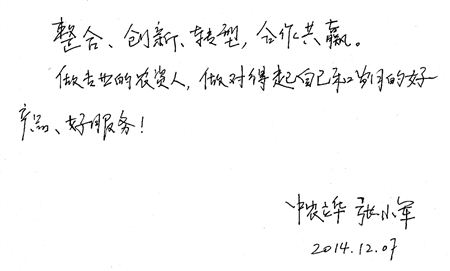 整合、创新、转型，合作共赢。
做专业的农资人，做对得起自己和岁月的好
产品、好服务！
中农立华 张小军
2014.12.07